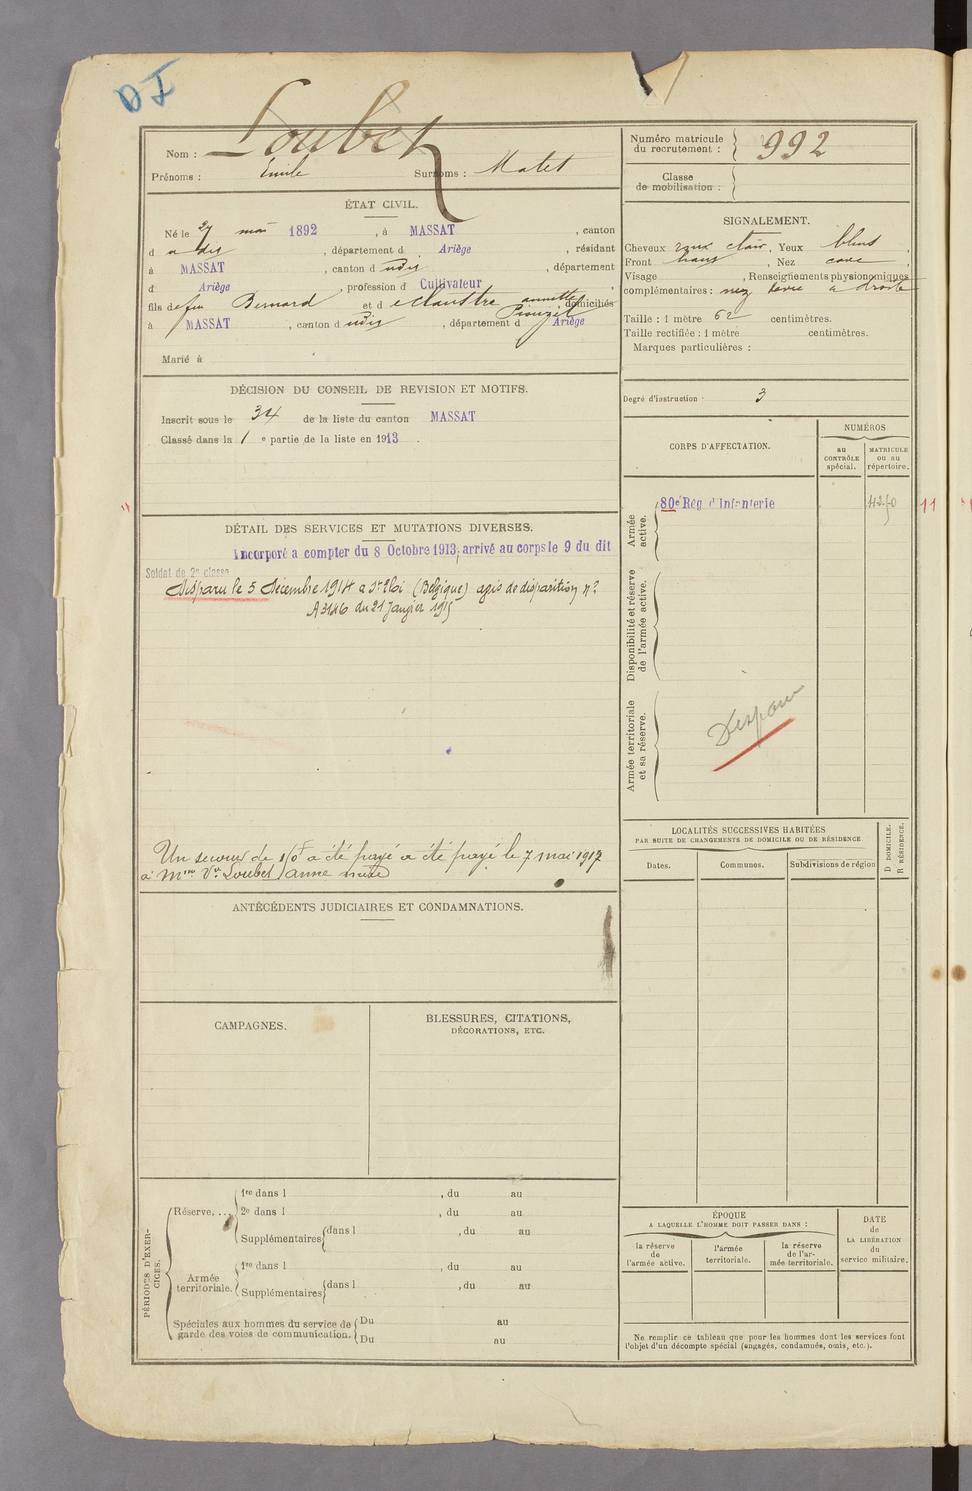 DI
Nom : Loubet
Prénoms : Emile Surnoms : Matet
Numéro matricule du recrutement : 992
Classe de mobilisation :
ÉTAT CIVIL.
Né le 27 mai 1892, à MASSAT, canton
d u dit, département d Ariège, résidant
à MASSAT, canton d udit, département
d' Ariège, profession d' Cultivateur,
fils de feu Bernard et d e Claustre annette Piouzet domiciliés
à MASSAT, canton d udit, département d Ariège
Marié à
SIGNALEMENT.
Cheveux roux clair, Yeux bleus
Front haut, Nez cave,
Visage , Renseignements physionomiques
complémentaires : nez dévié à droite
Taille : 1 mètre 62 centimètres.
Taille rectifiée : 1 mètre centimètres.
Marques particulières :
Degré d'instruction : 3
DÉCISION DU CONSEIL DE REVISION ET MOTIFS.
Inscrit sous le 34 de la liste du canton MASSAT
Classé dans la 1 e partie de la liste en 1913.
CORPS D'AFFECTATION.
NUMÉROS
au CONTRÔLE spécial.
MATRICULE ou au répertoire.
Armée active.
80e Rég d'Infanterie
4250
11
Disponibilité et réserve de l'armée active.
Armée territoriale et sa réserve.
Disparu
DÉTAIL DES SERVICES ET MUTATIONS DIVERSES.
Incorporé a compter du 8 Octobre 1913, arrivé au corps le 9 du dit
Soldat de 2e classe
Disparu le 5 Décembre 1914 a St Eloi (Belgique) avis de disparition n°
A3146 du 21 Janvier 1915
Un secours de 150f a été payé a été payé le 7 mai 1917
à Mme Vve Loubet anne mère
LOCALITÉS SUCCESSIVES HABITÉES
PAR SUITE DE CHANGEMENTS DE DOMICILE OU DE RÉSIDENCE.
Dates. Communes. Subdivisions de région
D DOMICILE.
R RÉSIDENCE.
ANTÉCÉDENTS JUDICIAIRES ET CONDAMNATIONS.
CAMPAGNES.
BLESSURES, CITATIONS,
DÉCORATIONS, ETC.
PÉRIODES D'EXERCICES.
Réserve...
1re dans l , du au
2e dans l , du au
Supplémentaires dans l , du au
Armée territoriale.
1re dans l , du au
Supplémentaires dans l , du au
Spéciales aux hommes du service de garde des voies de communication.
Du au
Du au
ÉPOQUE
A LAQUELLE L'HOMME DOIT PASSER DANS :
la réserve de l'armée active.
l'armée territoriale.
la réserve de l'armée territoriale.
DATE de LA LIBÉRATION du service militaire.
Ne remplir ce tableau que pour les hommes dont les services font
l'objet d'un décompte spécial (engagés, condamnés, omis, etc.).